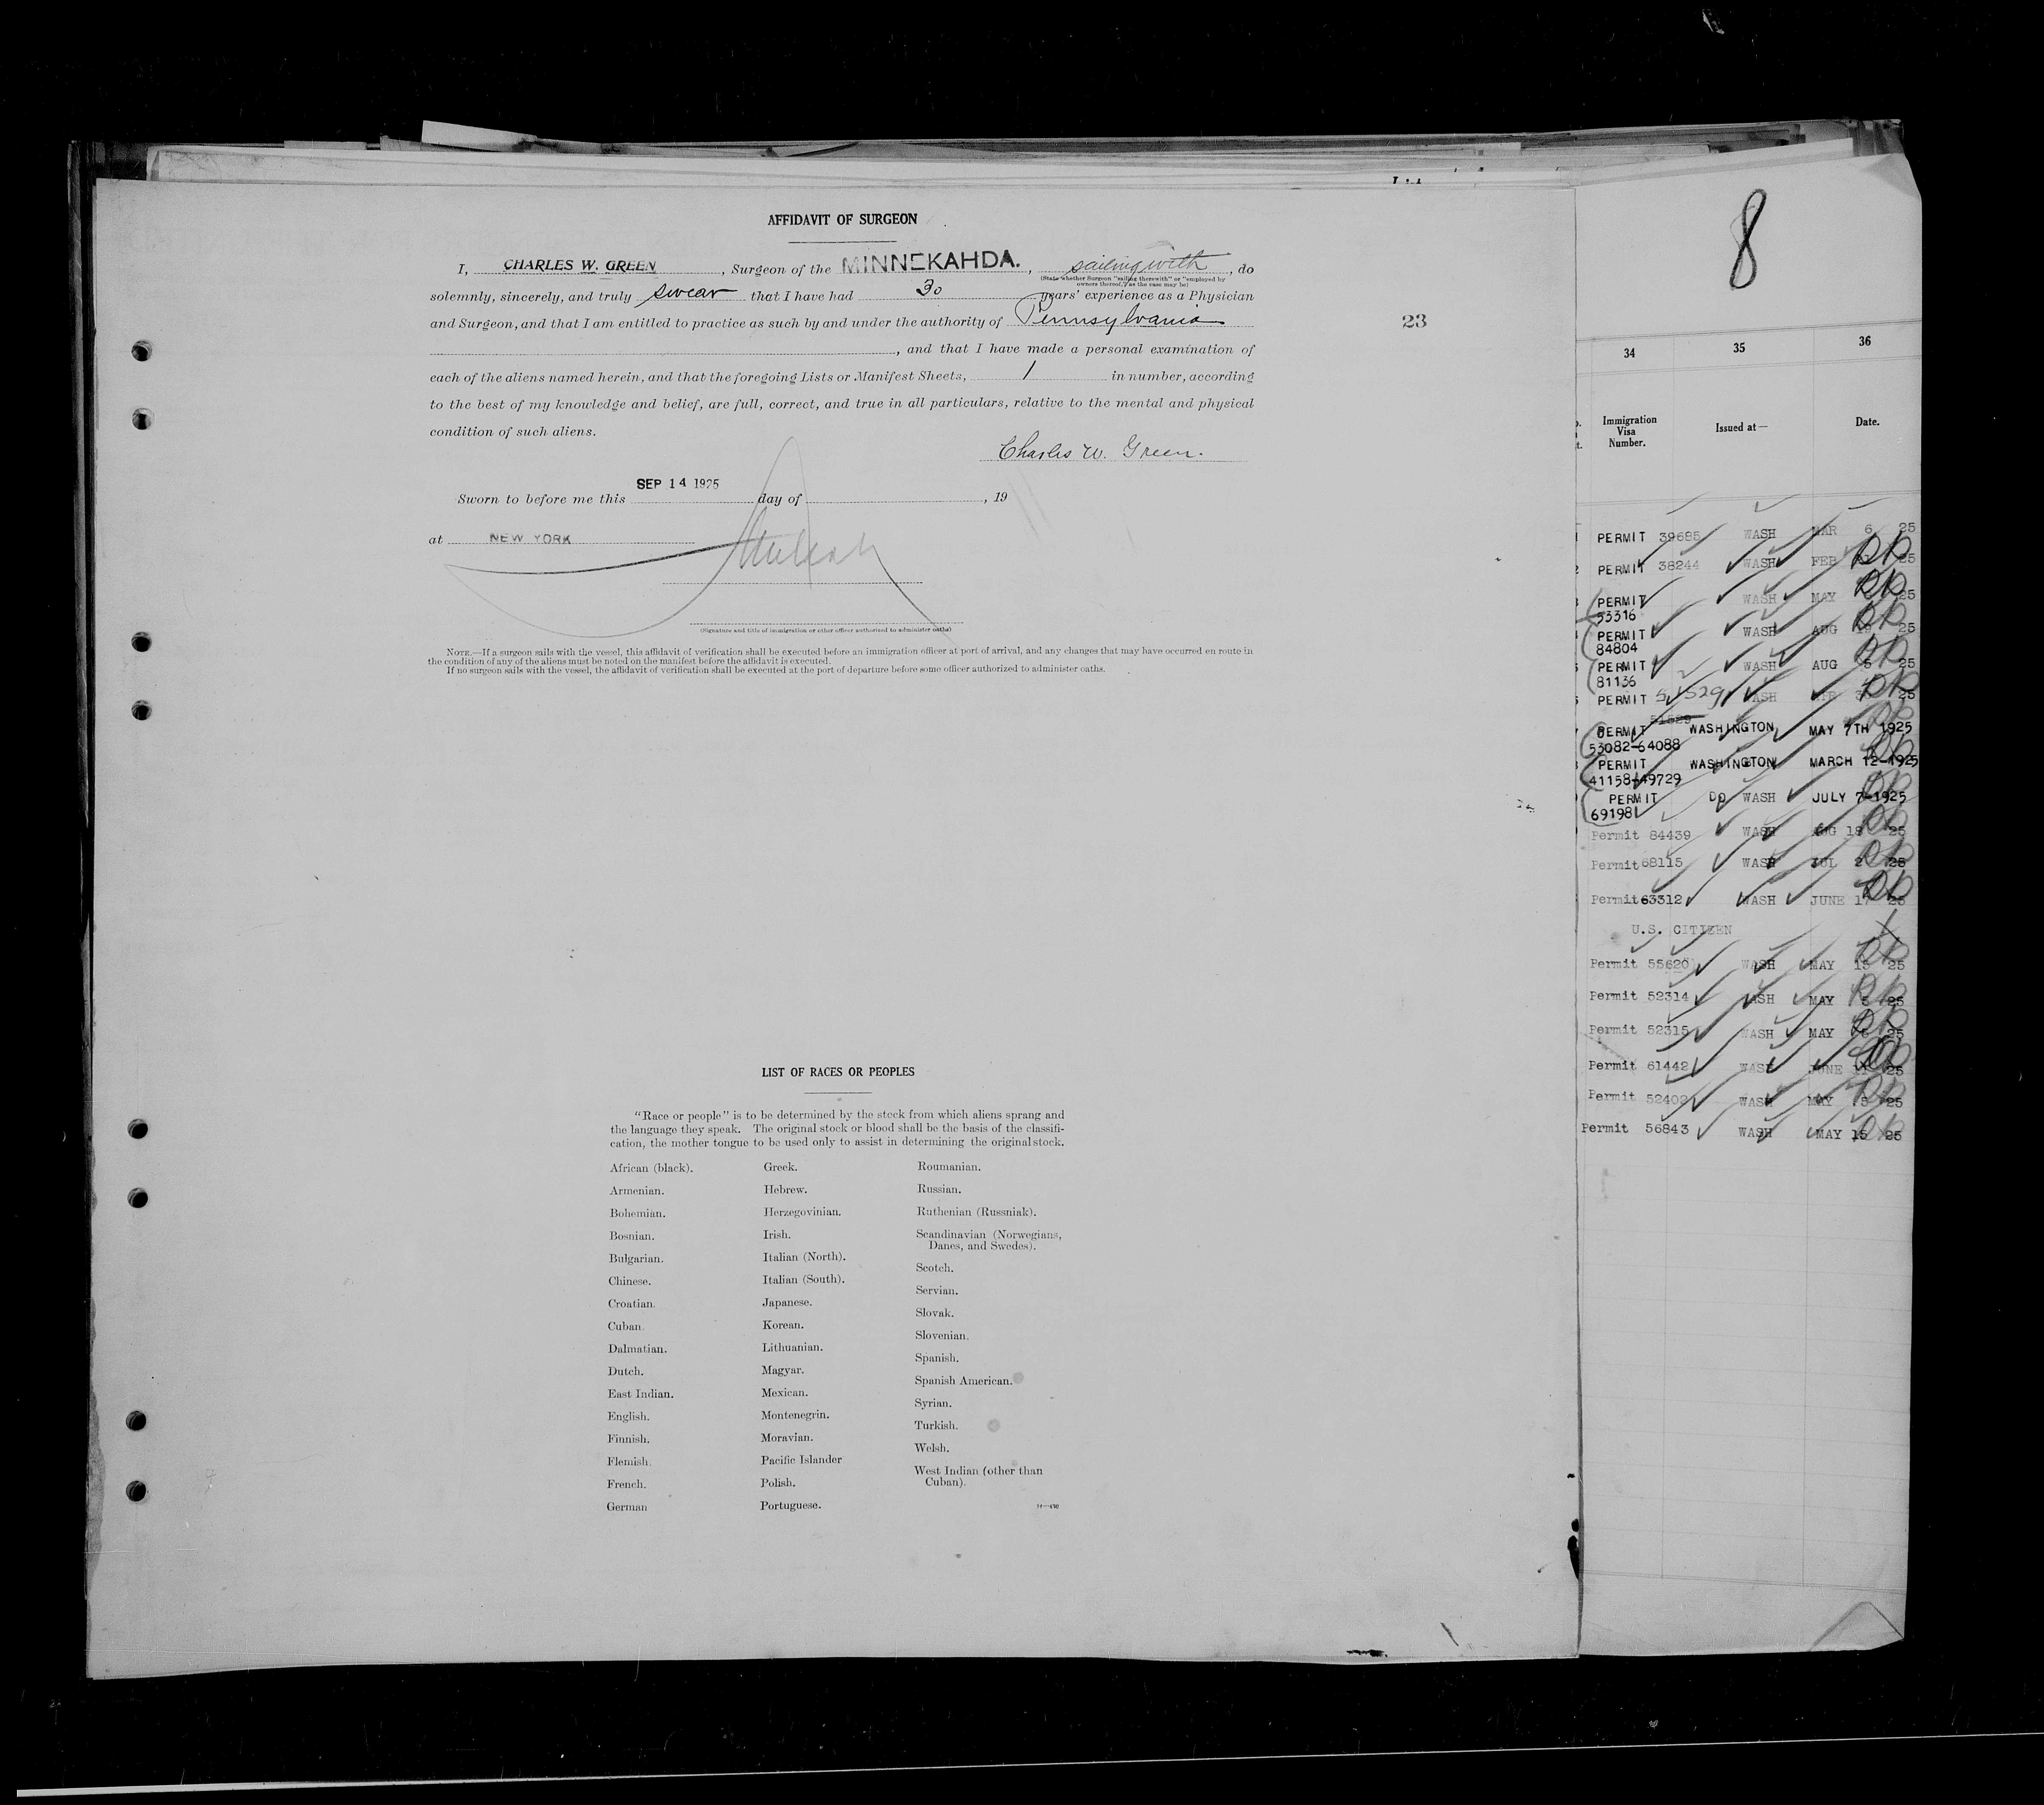 AFFIDAVIT OF SURGEON
I, CHARLES W. GREEN, Surgeon of the MINNEKAHDA., sailing with, do
(State whether Surgeon "sailing therewith" or "employed by
owners thereof," as the case may be)
solemnly, sincerely, and truly swear that I have had 30 years' experience as a Physician
and Surgeon, and that I am entitled to practice as such by and under the authority of Pennsylvania
, and that I have made a personal examination of
each of the aliens named herein, and that the foregoing Lists or Manifest Sheets, 1 in number, according
to the best of my knowledge and belief, are full, correct, and true in all particulars, relative to the mental and physical
condition of such aliens.
Charles W. Green.
Sworn to before me this SEP 14 1925 day of , 19
at NEW YORK
(Signature and title of immigration or other officer authorized to administer oaths)
NOTE.—If a surgeon sails with the vessel, this affidavit of verification shall be executed before an immigration officer at port of arrival, and any changes that may have occurred en route in
the condition of any of the aliens must be noted on the manifest before the affidavit is executed.
If no surgeon sails with the vessel, the affidavit of verification shall be executed at the port of departure before some officer authorized to administer oaths.
23
LIST OF RACES OR PEOPLES
"Race or people" is to be determined by the stock from which aliens sprang and
the language they speak. The original stock or blood shall be the basis of the classifi-
cation, the mother tongue to be used only to assist in determining the original stock.
African (black).
Armenian.
Bohemian.
Bosnian.
Bulgarian.
Chinese.
Croatian.
Cuban.
Dalmatian.
Dutch.
East Indian.
English.
Finnish.
Flemish.
French.
German
Greek.
Hebrew.
Herzegovinian.
Irish.
Italian (North).
Italian (South).
Japanese.
Korean.
Lithuanian.
Magyar.
Mexican.
Montenegrin.
Moravian.
Pacific Islander
Polish.
Portuguese.
Roumanian.
Russian.
Ruthenian (Russniak).
Scandinavian (Norwegians,
Danes, and Swedes).
Scotch.
Servian.
Slovak.
Slovenian.
Spanish.
Spanish American.
Syrian.
Turkish.
Welsh.
West Indian (other than
Cuban).
8
34 35 36
Immigration
Visa
Number.
Issued at—
Date.
PERMIT 39685 WASH MAR 6 25
PERMIT 38244 WASH FEB 25
PERMIT WASH MAY 25
53316
PERMIT WASH AUG 25
84804
PERMIT WASH AUG 5 25
81136
PERMIT WASH 25
51529
PERMIT WASHINGTON MAY 7TH 1925
53082-64088
PERMIT WASHINGTON MARCH 12-1925
41158-49729
PERMIT DO WASH JULY 7-1925
69198
Permit 84439 WASH AUG 18 25
Permit 68115 WASH JUL 2 25
Permit 63312 WASH JUNE 17 25
U.S. CITIZEN
Permit 55620 WASH MAY 15 25
Permit 52314 WASH MAY 25
Permit 52315 WASH MAY 25
Permit 61442 WASH JUNE 25
Permit 52402 WASH MAY 25
Permit 56843 WASH MAY 15 25